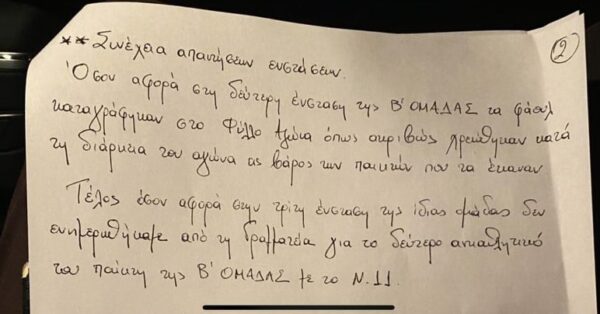 ** Συνέχεια απαντήσεων ενστάσεων.
②
Όσον αφορά στη δεύτερη ένσταση της Β' ΟΜΑΔΑΣ τα φάουλ
καταγράφηκαν στο Φύλλο Αγώνα όπως ακριβώς χρεώθηκαν κατά
τη διάρκεια του αγώνα εις βάρος των παικτών που τα έκαναν
Τέλος όσον αφορά στην τρίτη ένσταση της ίδιας ομάδας δεν
ενημερωθήκαμε από τη Γραμματεία για το δεύτερο αντιαθλητικό
του παίκτη της Β' ΟΜΑΔΑΣ με το Ν.11.